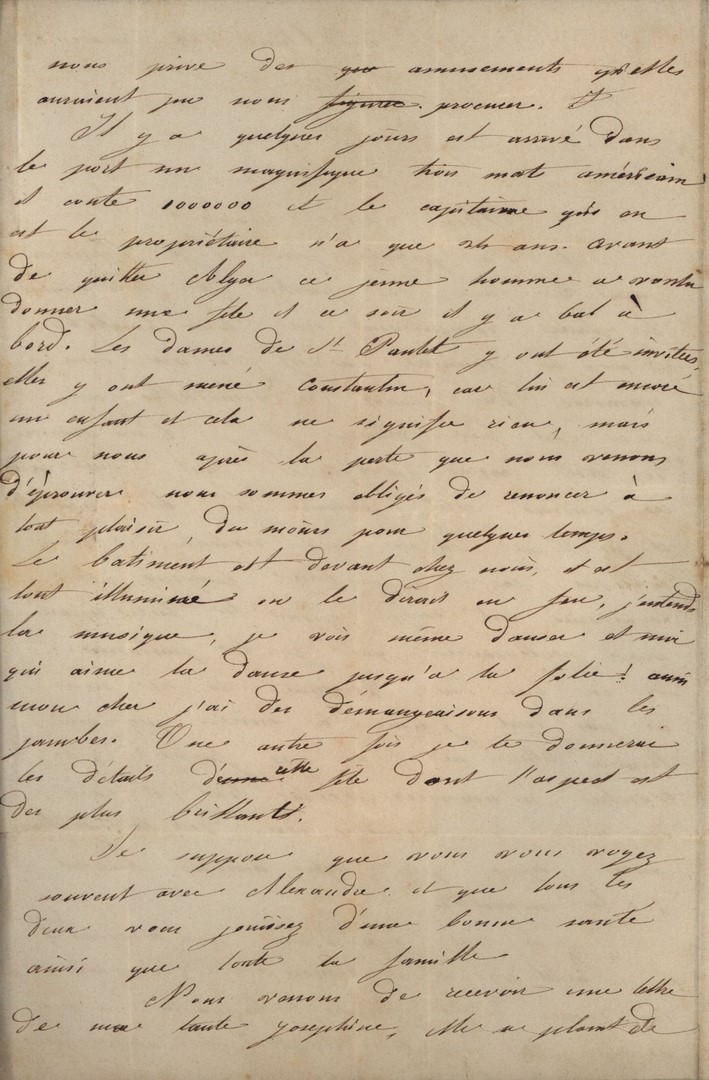 nous prive des que amusements qu'elles
auraient pu nous figurer. procurer.
Il y a quelques jours est arrivé dans
le port un magnifique trois mats américain
il coute 1000000 et le capitaine qui en
est le propriétaire n'a que 25 ans. avant
de quitter Alger ce jeune homme a voulu
donner une fête et ce soir il y a bal à
bord. Les dames de St Paulet y ont été invitées,
elles y ont mené Constantin, car lui est encore
un enfant et cela ne signifie rien, mais
pour nous après la perte que nous venons
d'éprouver nous sommes obligés de renoncer à
tout plaisir, du moins pour quelques temps.
Le batiment est devant chez nous, il est
tout illuminé on le dirait en feu, j'entends
la musique, je vois même danser et moi
qui aime la danse jusqu'a la folie! aussi
mon cher j'ai des démangeaisons dans les
jambes. Une autre fois je te donnerai
les détails d'une cette fête dont l'aspect est
des plus brillants.
Je suppose que vous vous voyez
souvent avec Alexandre. et que tous les
deux vous jouissez d'une bonne santé
ainsi que toute la famille
Nous venons de recevoir une lettre
de ma tante Josephine, elle se plaint de